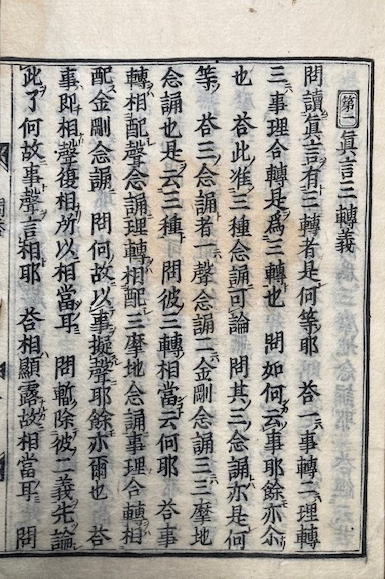 第一 眞言三轉義
問讀眞言有三轉者是何等耶 荅一事轉二理轉
三事理合轉是爲三轉也 問如何云事耶餘亦尒
也 荅此准三種念誦可論 問其三念誦亦是何
等 荅三念誦者一聲念誦二金剛念誦三三摩地
念誦也是云三種 問彼三轉相當云何耶 荅事
轉相配聲念誦理轉相配三摩地念誦事理合轉相
配金剛念誦 問何故以事擬聲耶餘亦爾也 荅
事即相聲復相所以相當耳 問暫除彼二義先論
此了何故事聲言相耶 荅相顯露故相當耳 問